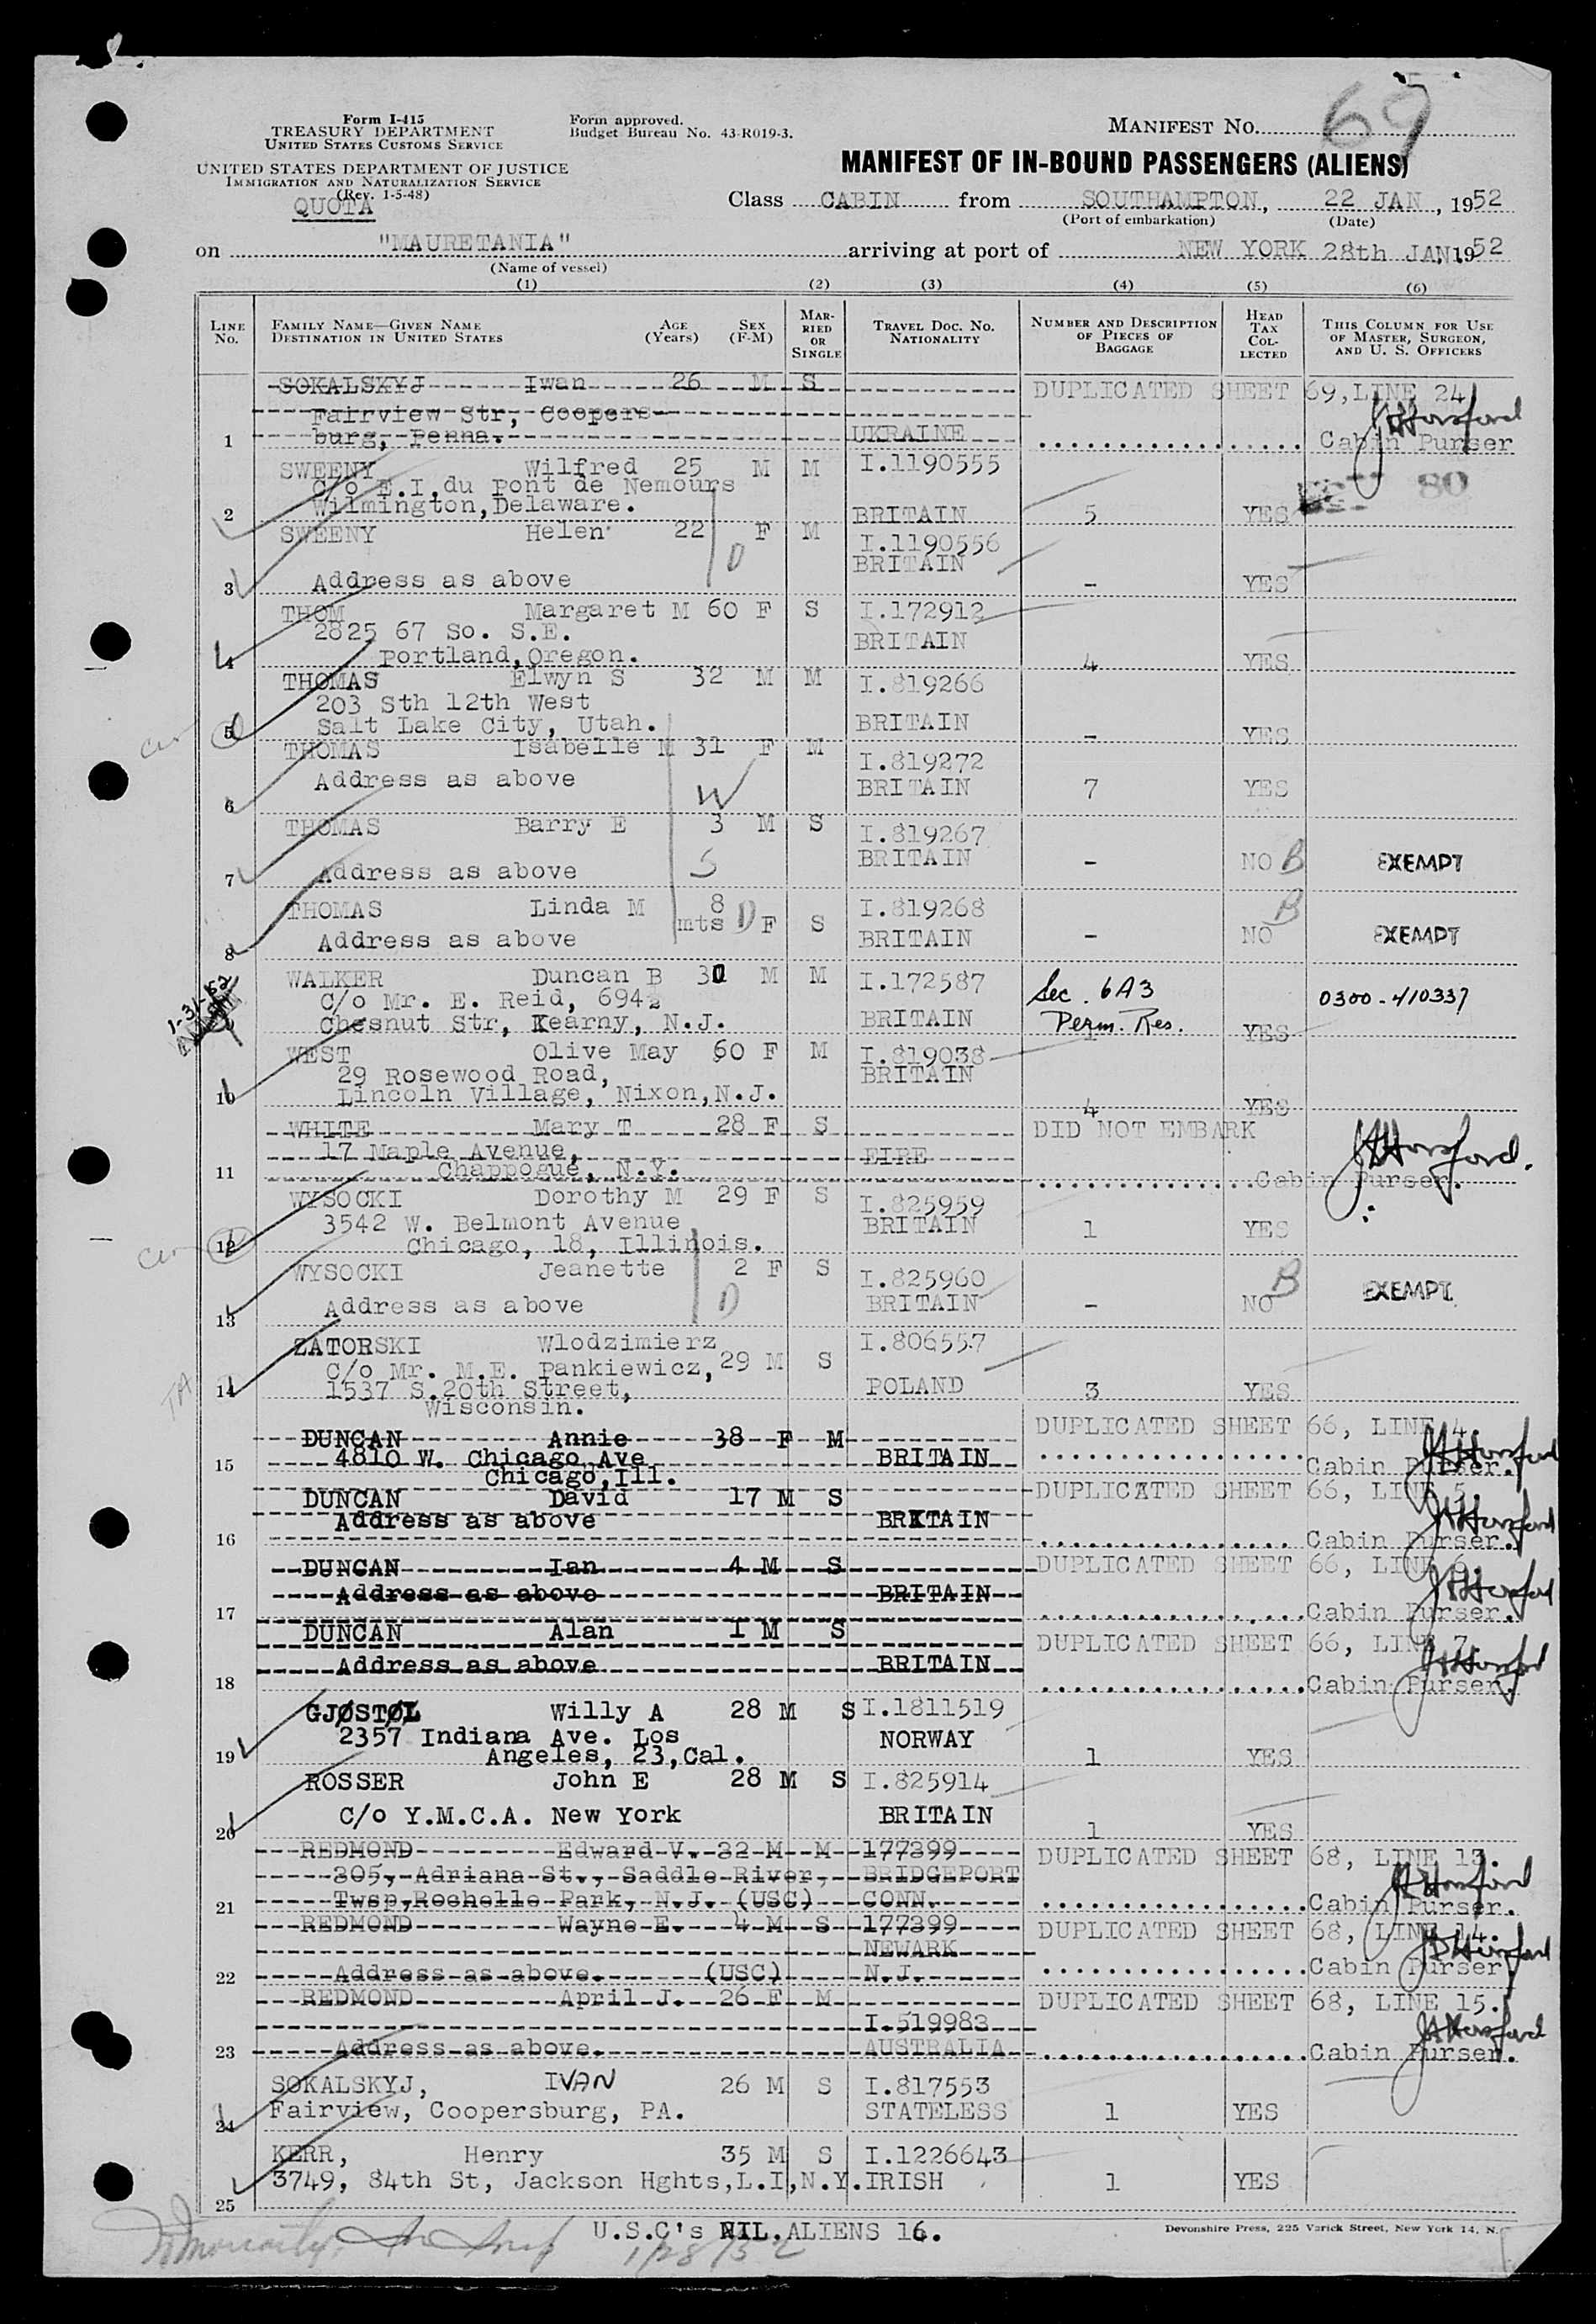 69
Form I-415
TREASURY DEPARTMENT
UNITED STATES CUSTOMS SERVICE
Form approved.
Budget Bureau No. 43-R019-3.
MANIFEST NO.
UNITED STATES DEPARTMENT OF JUSTICE
IMMIGRATION AND NATURALIZATION SERVICE
(Rev. 1-5-48)
QUOTA
MANIFEST OF IN-BOUND PASSENGERS (ALIENS)
Class CABIN from SOUTHAMPTON, 22 JAN, 1952
(Port of embarkation) (Date)
on "MAURETANIA" arriving at port of NEW YORK 28th JAN, 1952
(Name of vessel)
(1) (2) (3) (4) (5) (6)
LINE No. FAMILY NAME—GIVEN NAME DESTINATION IN UNITED STATES AGE (Years) SEX (F-M) MARRIED OR SINGLE TRAVEL DOC. NO. NATIONALITY NUMBER AND DESCRIPTION OF PIECES OF BAGGAGE HEAD TAX COLLECTED THIS COLUMN FOR USE OF MASTER, SURGEON, AND U. S. OFFICERS
SOKALSKYJ Iwan 26 M S DUPLICATED SHEET 69, LINE 24
Fairview Str, Coopers-
1 burg, Penna. UKRAINE Cabin Purser
SWEENY Wilfred 25 M M I.1190555 80
C/o E.I.du Pont de Nemours
2 Wilmington, Delaware. BRITAIN 5 YES
SWEENY Helen 22 F M I.1190556
BRITAIN
3 Address as above D - YES
THOM Margaret M 60 F S I.172912
2825 67 So. S.E. BRITAIN
4 Portland, Oregon. 4 YES
THOMAS Elwyn S 32 M M I.819266
203 Sth 12th West
5 Salt Lake City, Utah. BRITAIN - YES
THOMAS Isabelle M 31 F M I.819272
6 Address as above W BRITAIN 7 YES
THOMAS Barry E 3 M S I.819267
BRITAIN
7 Address as above S - NO B EXEMPT
THOMAS Linda M 8 mts D F S I.819268 B
8 Address as above BRITAIN - NO EXEMPT
WALKER Duncan B 30 M M I.172587 Sec. 6A3 0300-410337
1-31-52 C/o Mr. E. Reid, 694½
Chesnut Str, Kearny, N.J. BRITAIN Perm. Res. YES
WEST Olive May 60 F M I.819038
29 Rosewood Road, BRITAIN
10 Lincoln Village, Nixon, N.J. 4 YES
WHITE Mary T 28 F S DID NOT EMBARK
17 Maple Avenue, EIRE
11 Chappogue, N.Y. Cabin Purser.
WYSOCKI Dorothy M 29 F S I.825959
3542 W. Belmont Avenue BRITAIN 1 YES
12 Chicago, 18, Illinois.
WYSOCKI Jeanette 2 F S I.825960 B
13 Address as above D BRITAIN - NO EXEMPT
ZATORSKI Wlodzimierz 29 M S I.806557
C/o Mr. M.E. Pankiewicz,
14 1537 S.20th Street, POLAND 3 YES
Wisconsin.
DUNCAN Annie 38 F M DUPLICATED SHEET 66, LINE 4.
15 4810 W. Chicago Ave BRITAIN Cabin Purser.
Chicago, Ill.
DUNCAN David 17 M S DUPLICATED SHEET 66, LINE 5.
16 Address as above BRITAIN Cabin Purser.
DUNCAN Ian 4 M S DUPLICATED SHEET 66, LINE 6.
17 Address as above BRITAIN Cabin Purser.
DUNCAN Alan 1 M S DUPLICATED SHEET 66, LINE 7.
18 Address as above BRITAIN Cabin Purser.
GJØSTØL Willy A 28 M S I.1811519
2357 Indiana Ave. Los NORWAY
19 Angeles, 23, Cal. 1 YES
ROSSER John E 28 M S I.825914
20 C/o Y.M.C.A. New York BRITAIN 1 YES
REDMOND Edward V. 32 M M 177399 DUPLICATED SHEET 68, LINE 13.
305, Adriana St., Saddle River, BRIDGEPORT
21 Twsp, Rochelle Park, N.J. (USC) CONN. Cabin Purser.
REDMOND Wayne E. 4 M S 177399 DUPLICATED SHEET 68, LINE 14.
NEWARK
22 Address as above. (USC) N.J. Cabin Purser
REDMOND April J. 26 F M DUPLICATED SHEET 68, LINE 15.
I.519983
23 Address as above. AUSTRALIA Cabin Purser.
SOKALSKYJ, IVAN 26 M S I.817553
24 Fairview, Coopersburg, PA. STATELESS 1 YES
KERR, Henry 35 M S I.1226643
3749, 84th St, Jackson Hghts, L.I, N.Y. IRISH 1 YES
25
U.S.C's NIL. ALIENS 16.
1/28/52
Devonshire Press, 225 Varick Street, New York 14, N.